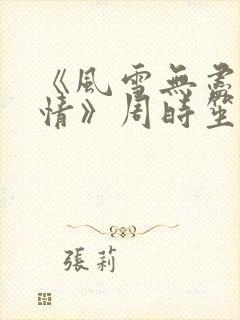 《風雪無盡
情》周時生
張莉